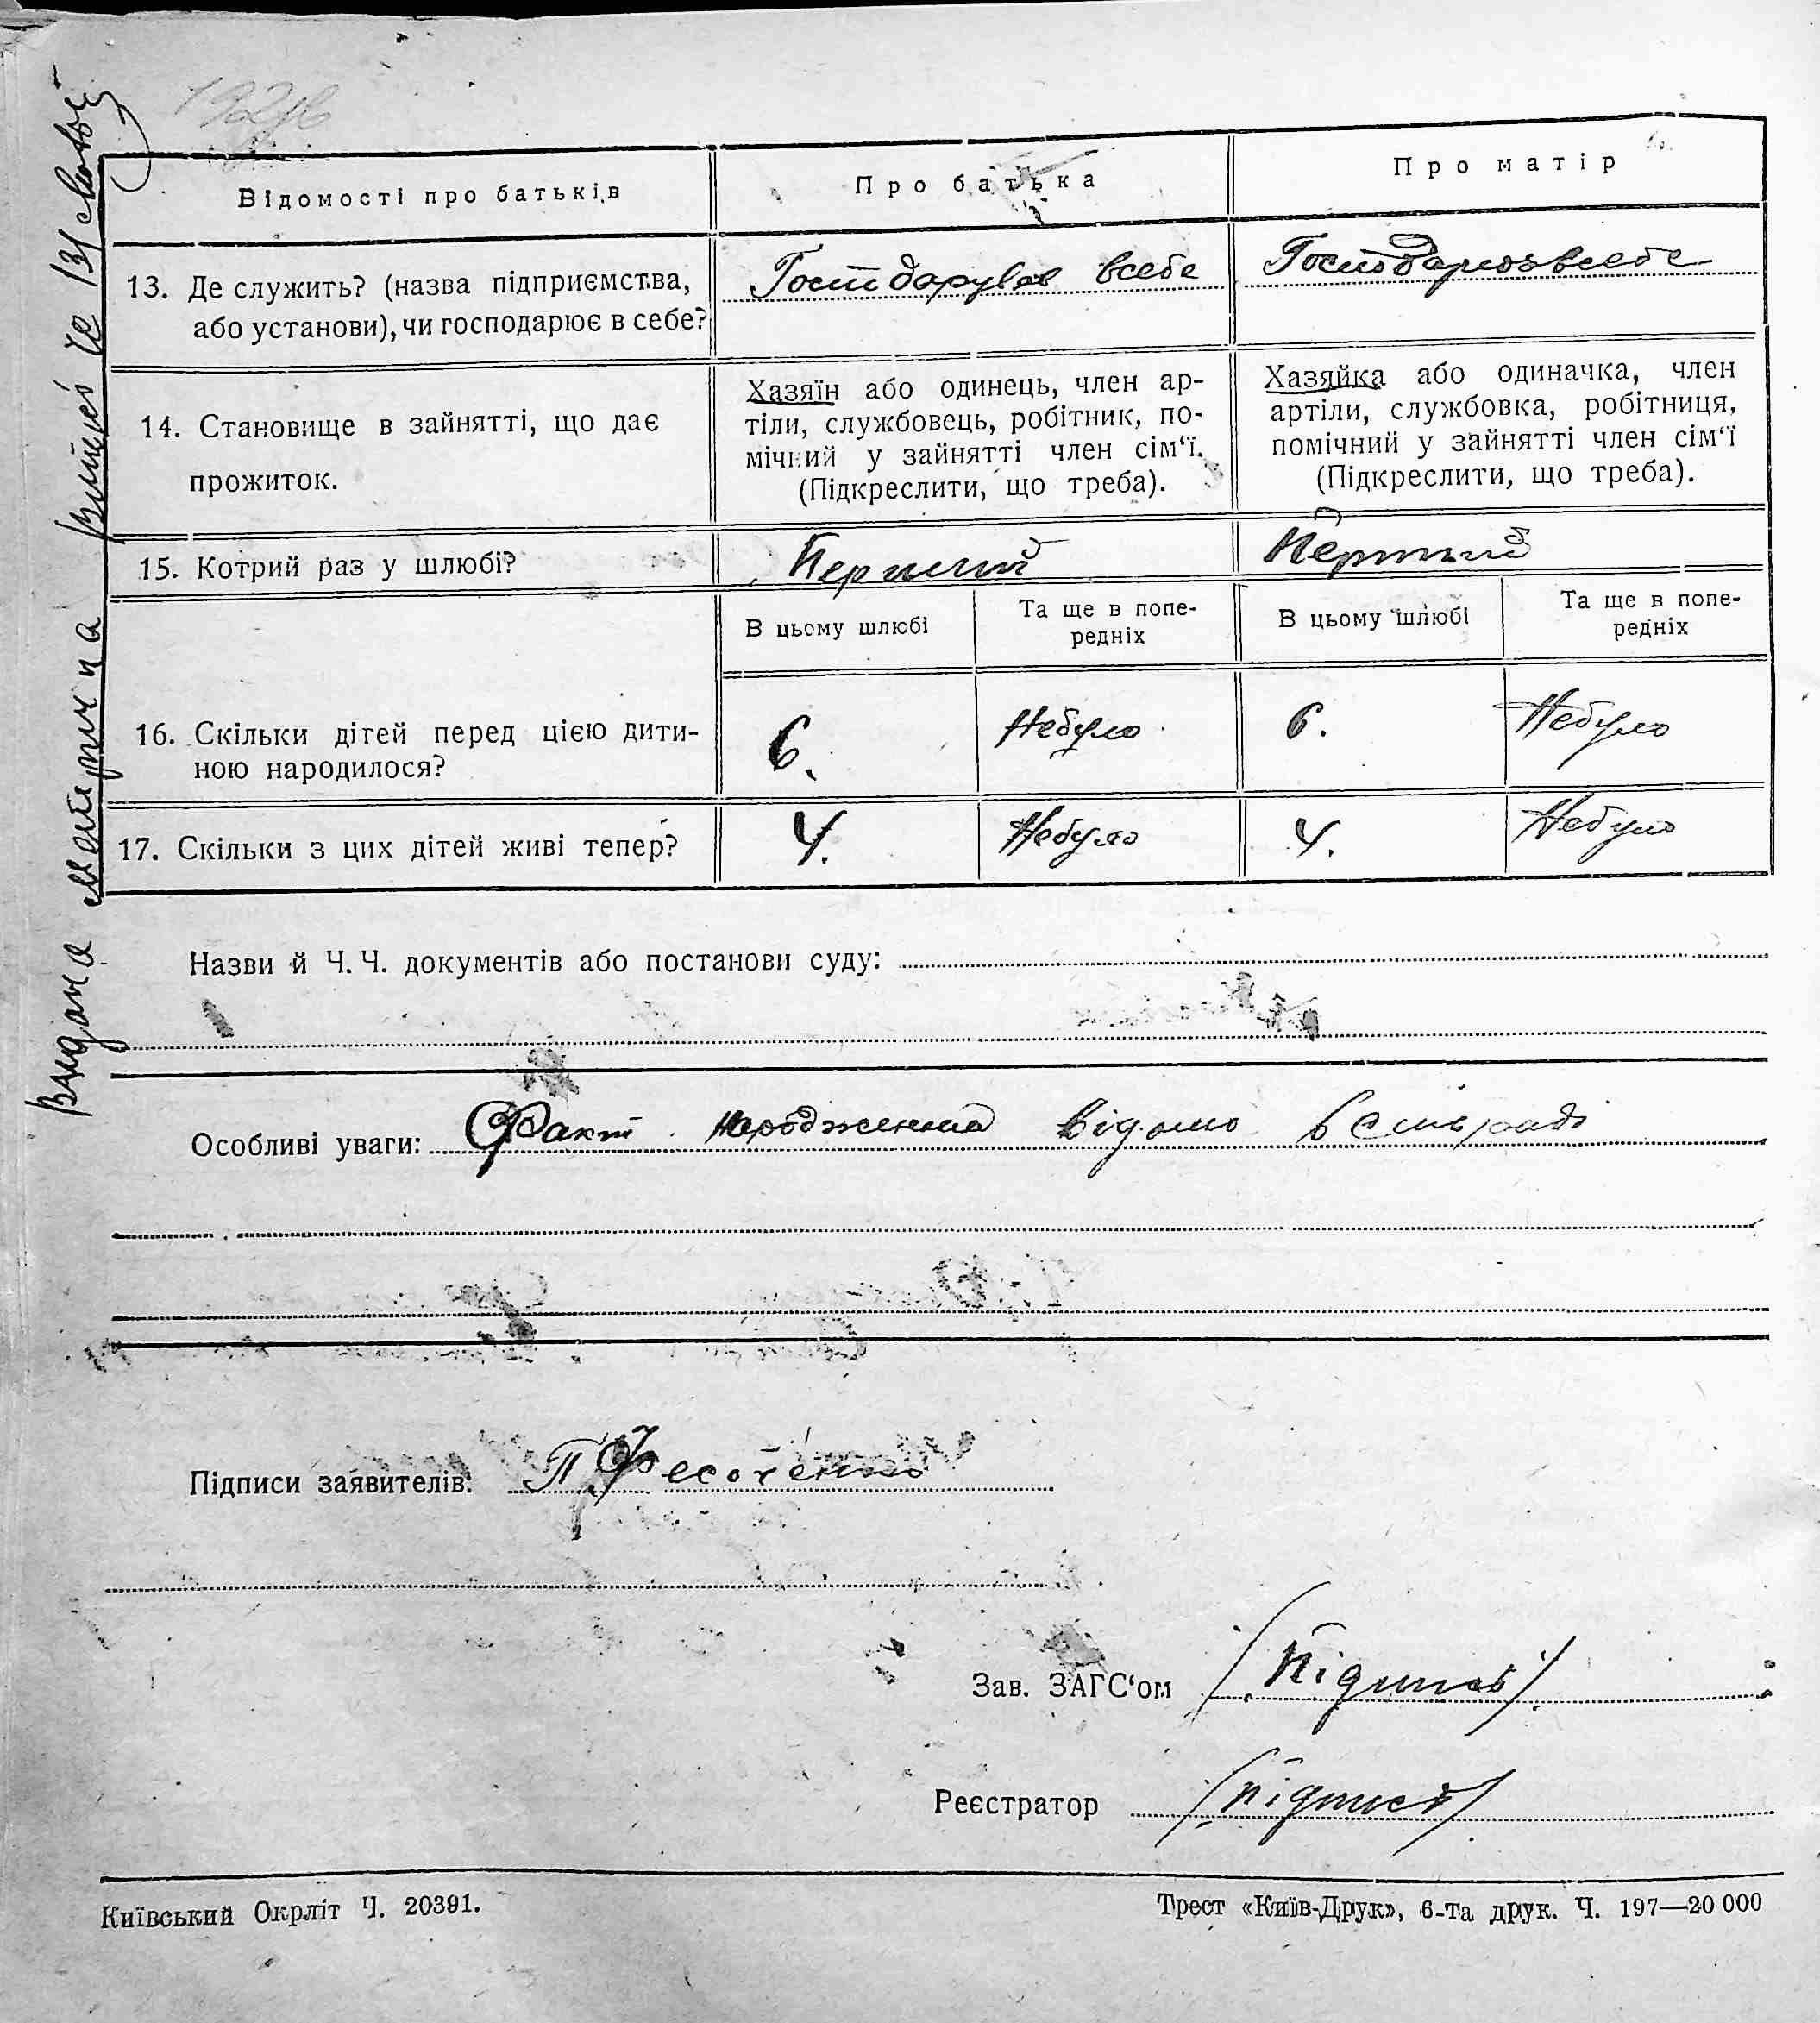 Відомості про батьків
Про батька
Про матір
13. Де служить? (назва підприємства, або установи), чи господарює в себе?
Господарував всебе
Господарює всебе
14. Становище в зайнятті, що дає прожиток.
Хазяїн або одинець, член ар-
тіли, службовець, робітник, по-
мічний у зайнятті член сім‘ї.
(Підкреслити, що треба).
Хазяйка або одиначка, член
артіли, службовка, робітниця,
помічний у зайнятті член сім‘ї
(Підкреслити, що треба).
15. Котрий раз у шлюбі?
Перший
Перший
В цьому шлюбі
Та ще в попе-
редніх
В цьому шлюбі
Та ще в попе-
редніх
16. Скільки дітей перед цією дити-
ною народилося?
6.
Небуло
6.
Небуло
17. Скільки з цих дітей живі тепер?
4.
Небуло
4.
Небуло
Назви й Ч. Ч. документів або постанови суду:
Особливі уваги: Факт народження відомо в сільраді
Підписи заявителів: П Фесоченко
Зав. ЗАГС‘ом /Підпись/
Реєстратор /підпись/
Київський Окрліт Ч. 20391.
Трест «Київ-Друк», 6-та друк. Ч. 197—20 000
Видана матрична